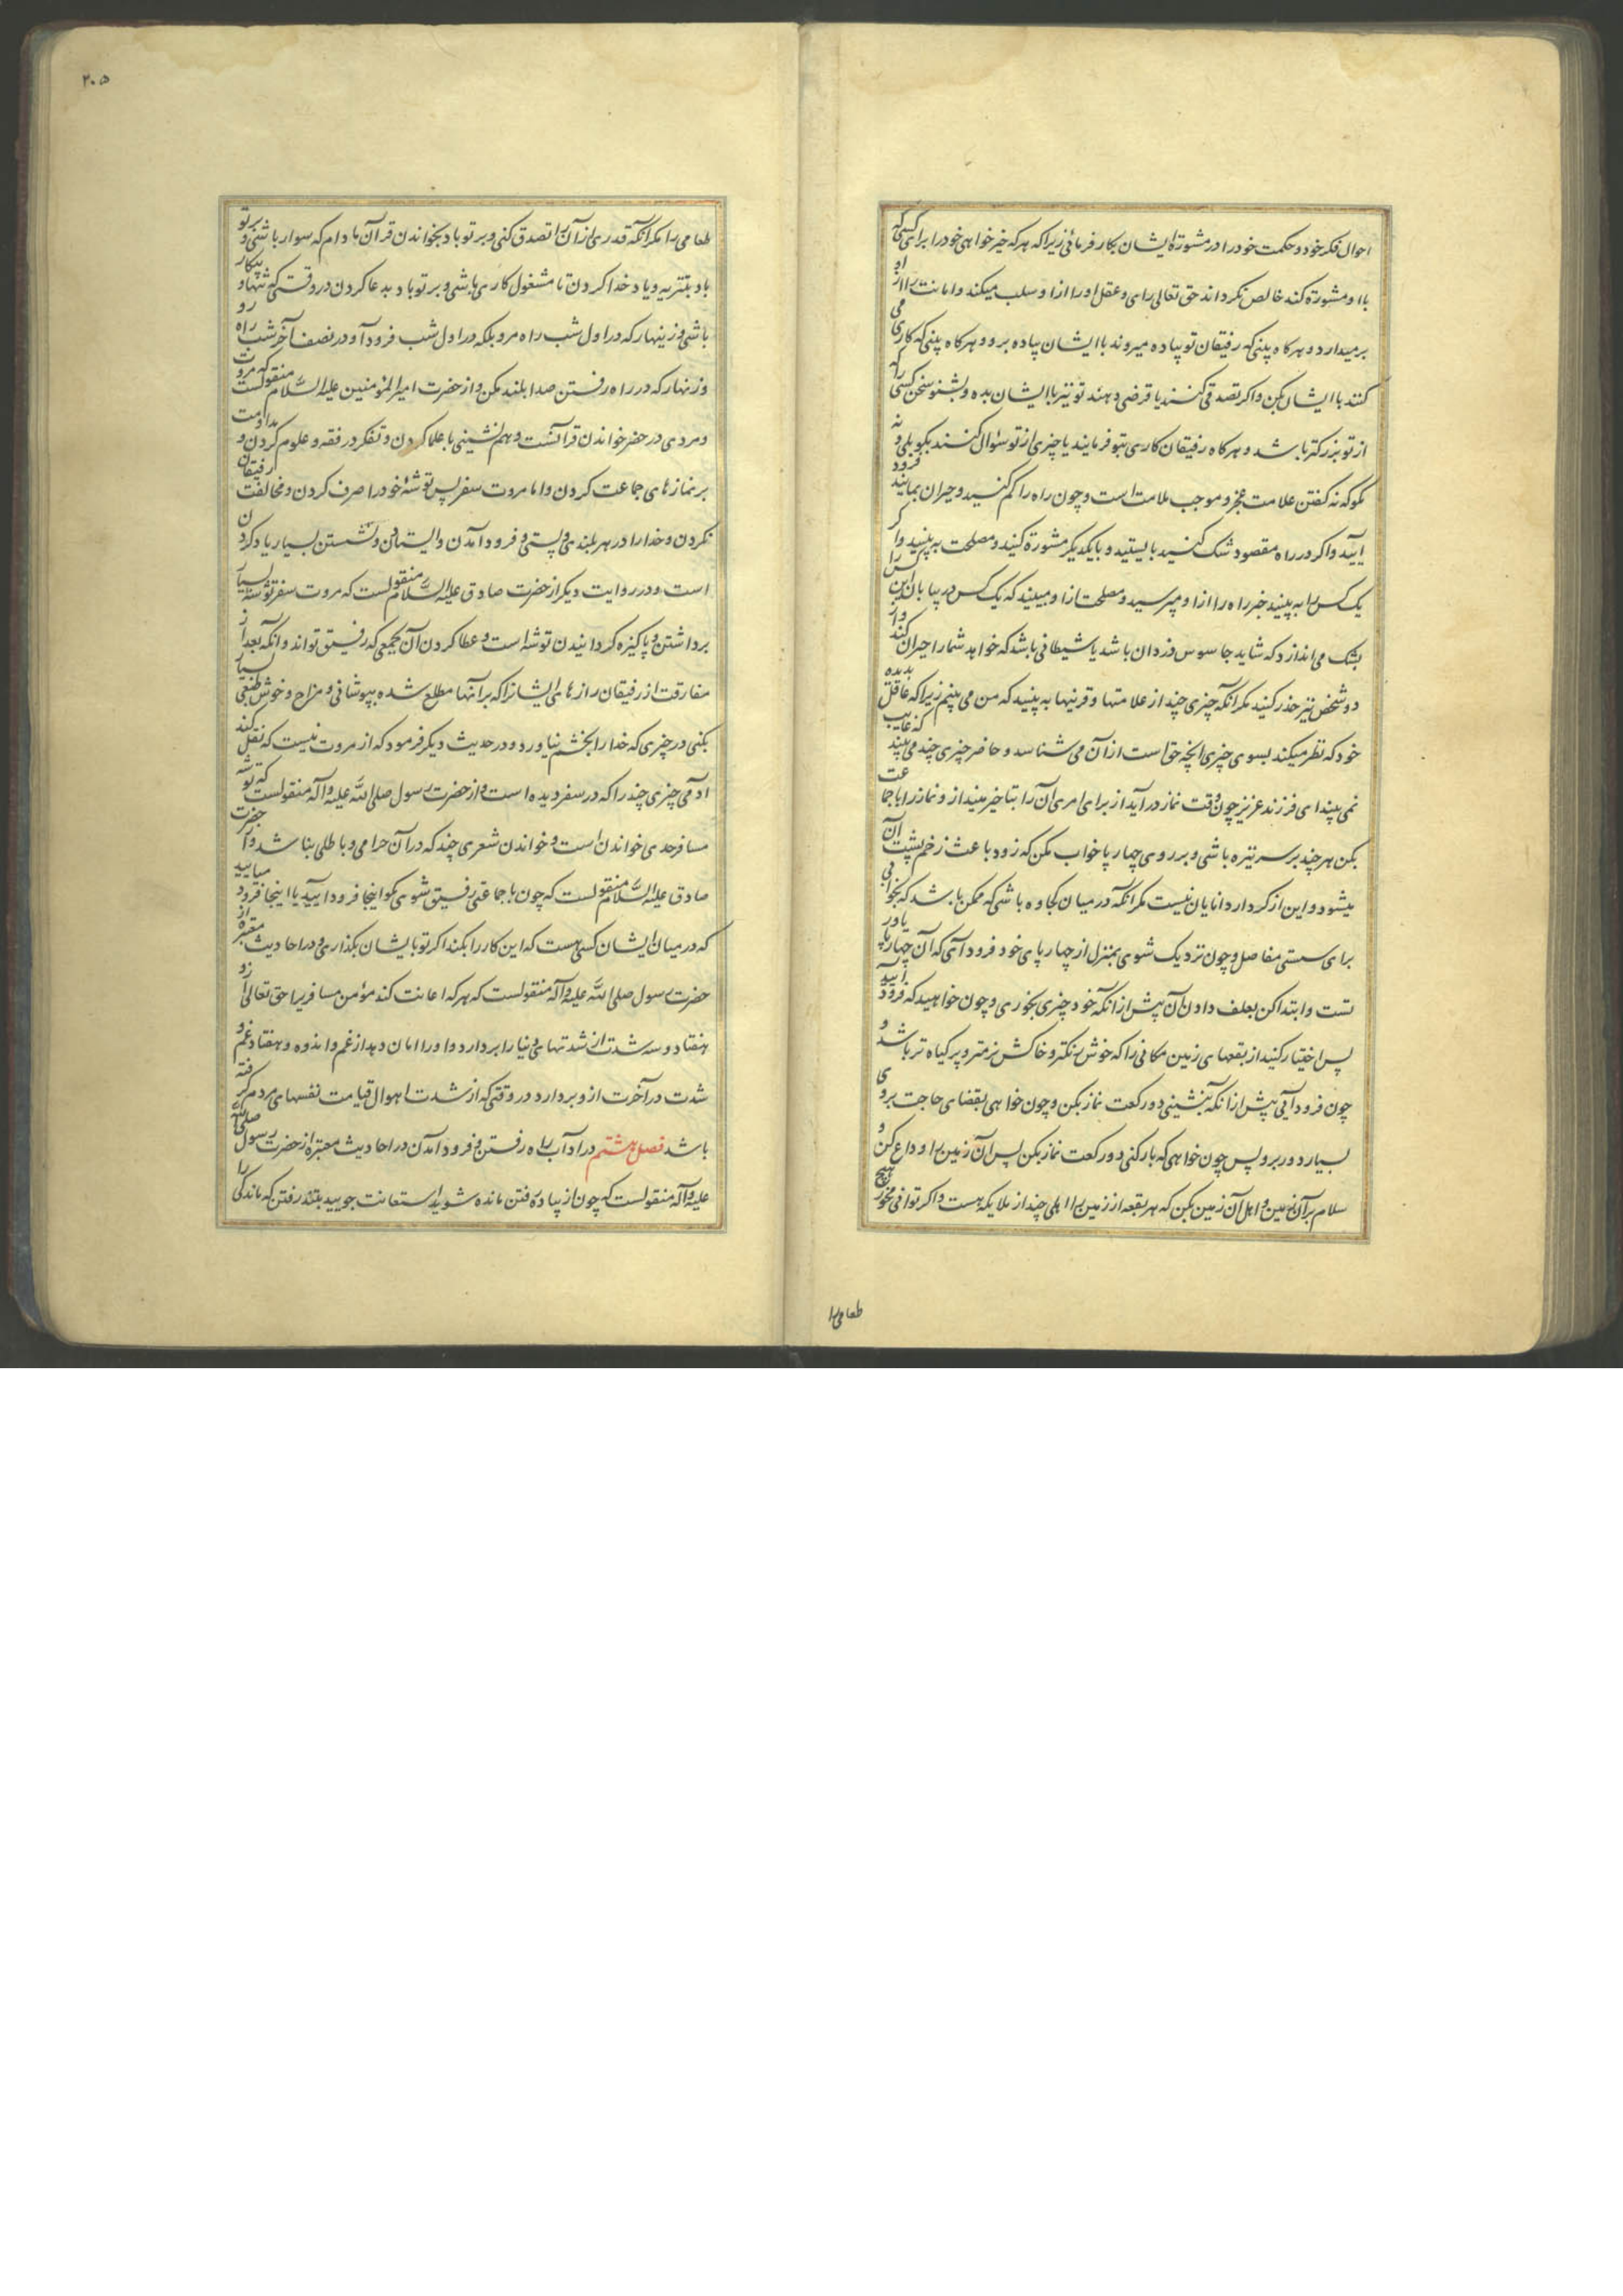 احوال فکر خود و حکمت خود را در مشورة ایشان بکار فرمائی زیرا که هر که خیر خواهی خود را برای کسی که
با او مشورة کند خالص نکرداند حق تعالی رای و عقل او را ازا و سلب میکند و امانت را از او
برمیدارد و هرکاه بینی که رفیقان تو پیاده میروند با ایشان پیاده برو و هرکاه بینی که کاری می
کنند با ایشان بکن و اکر تصدقی کنند یا قرضی دهند تو نیز با ایشان بده و بشنو سخن کسی را که
از تو بزرکتر باشد و هرکاه رفیقان کاری بتو فرمایند یا چیزی از تو سؤال کنند بکو بلی و نه
مکو که نه کفتن علامت عجز و موجب ملامت است و چون راه را کم کنید و حیران بمانید فرود
آیید و اکر در راه مقصود شک کنید بایستید و با یکدیکر مشورة کنید و مصلحت به بینید و اکر
یک کس را به بینید خبر راه را ازا و مپرسید و مصلحت ازا و مبینید که یک کس در بیابان این کس را
بشک می اندازد که شاید جاسوس دزدان باشد یا شیطانی باشد که خواهد شما را حیران کند و از
دو شخص نیز حذر کنید مکر انکه چیزی چند از علامتها و قرینها به بینید که من می بینم زیرا که عاقل بدیده
خود که نظر میکند بسوی چیزی انچه حق است از آن می شناسد و حاضر چیزی چند می بیند که غایب
نمی بیند ای فرزند عزیز چون وقت نماز در آید از برای امری آن را بتاخیر مینداز و نماز را با جماعت
بکن هر چند بر سر نیزه باشی و بر روی چهار پا خواب مکن که زود باعث زخم پشت آن
میشود و این از کردار دانایان نیست مکر انکه در میان کجاوه باشی که ممکن باشد که بخوابی
برای سستی مفاصل و چون نزدیک شوی بمنزل از چهار پای خود فرود آی که آن چهارپا یاور
تست و ابتدا کن بعلف دادن آن پیش از انکه خود چیزی بخوری و چون خواهید که فرود آیید
پس اختیار کنید از بقعهای زمین مکانی را که خوش رنکتر و خاکش نرمتر و پر کیاه تر باشد و
چون فرود آیی پیش از انکه بنشینی دو رکعت نماز بکن و چون خواهی بقضای حاجت بروی
بسیار دور برو پس چون خواهی که بار کنی دو رکعت نماز بکن پس آن زمین را وداع کن و
سلام بر آن زمین و اهل آن زمین بکن که هر بقعه از زمین را اهلی چند از ملایکه هست و اکر توانی مخور هیچ
طعامی را
۲۰۵
طعامی را مکر انکه قدری از آن را تصدق کنی و بر تو باد بخواندن قرآن مادام که سوار باشی و بر تو
باد بتنزیه و یاد خدا کردن تا مشغول کاری باشی و بر تو باد بدعا کردن در وقتی که تنها و بیکار
باشی و زینهار که در اول شب راه مرو بلکه در اول شب فرود آ و در نصف آخر شب راه رو
و زنهار که در راه رفتن صدا بلند مکن و از حضرت امیر المؤمنین علیه السّلام منقولست که مروت
و مردی در حضر خواندن قرآنست و همنشینی با علما کردن و تفکر در فقه و علوم کردن و مداومت
بر نمازهای جماعت کردن و اما مروت سفر پس توشهٔ خود را صرف کردن و مخالفت رفیقان
نکردن و خدا را در هر بلندی و پستی و فرود آمدن و ایستادن و نشستن بسیار یاد کردن
است و در روایت دیکر از حضرت صادق علیه السّلام منقولست که مروت سفر توشه بسیار
برداشتن و پاکیزه کردانیدن توشه است و عطا کردن آن بجمعی که رفیق تواند و انکه بعد از
مفارقت از رفیقان رازهای ایشانرا که بر آنها مطلع شده بپوشانی و مزاح و خوش طبعی بسیار
بکنی در چیزی که خدا را بخشم نیاورد و در حدیث دیکر فرمود که از مروت نیست که نقل کند
آدمی چیزی چند را که در سفر دیده است و از حضرت رسول صلی اللّه علیه و آله منقولست که توشه
مسافر حدی خواندن است و خواندن شعری چند که در آن حرامی و باطلی نباشد و از حضرت
صادق علیه السّلام منقولست که چون با جماعتی رفیق شوی مکو اینجا فرود آیید یا اینجا فرود میایید
که در میان ایشان کسی هست که این کار را بکند اکر تو با یشان بکذاری و در احادیث معتبره از
حضرت رسول صلی اللّه علیه و آله منقولست که هر که اعانت کند مؤمن مسافریرا حق تعالی از و
هفتاد و سه شدت از شدتهای دنیا را بردارد و او را امان دهد از غم و اندوه و هفتاد غم و
شدت در آخرت ازو بردارد در وقتی که از شدت اهوال قیامت نفسهای مردم کرفته
باشد فصل هشتم در آداب راه رفتن و فرود آمدن در احادیث معتبره از حضرت رسول صلی اللّه
علیه و آله منقولست که چون از پیاده رفتن مانده شوید استعانت جویید بتند رفتن که ماندکی را